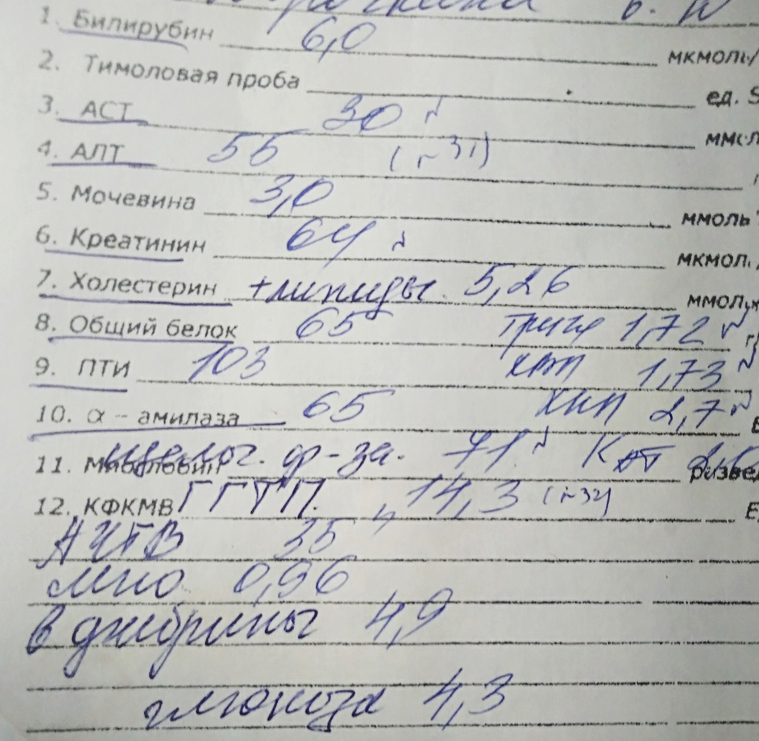 1. Билирубин 6,0 мкмоль/
2. Тимоловая проба ед. S
3. АСТ 30 N
4. АЛТ 55 (N 31)
5. Мочевина 3,0 ммоль
6. Креатинин 64 N мкмол
7. Холестерин + липиды 5,26 ммоль
8. Общий белок 65 триг 1,72 N
9. ПТИ 103 1,73 N
10. α – амилаза 65 2,7 N
11. Миоглобин щелоч. ф-за. 71 N развед
12. КФКМВ ГГТП. 14,3 (N 32) Е
АЧТВ 35
мно 0,96
4,9
глюкоза 4,3